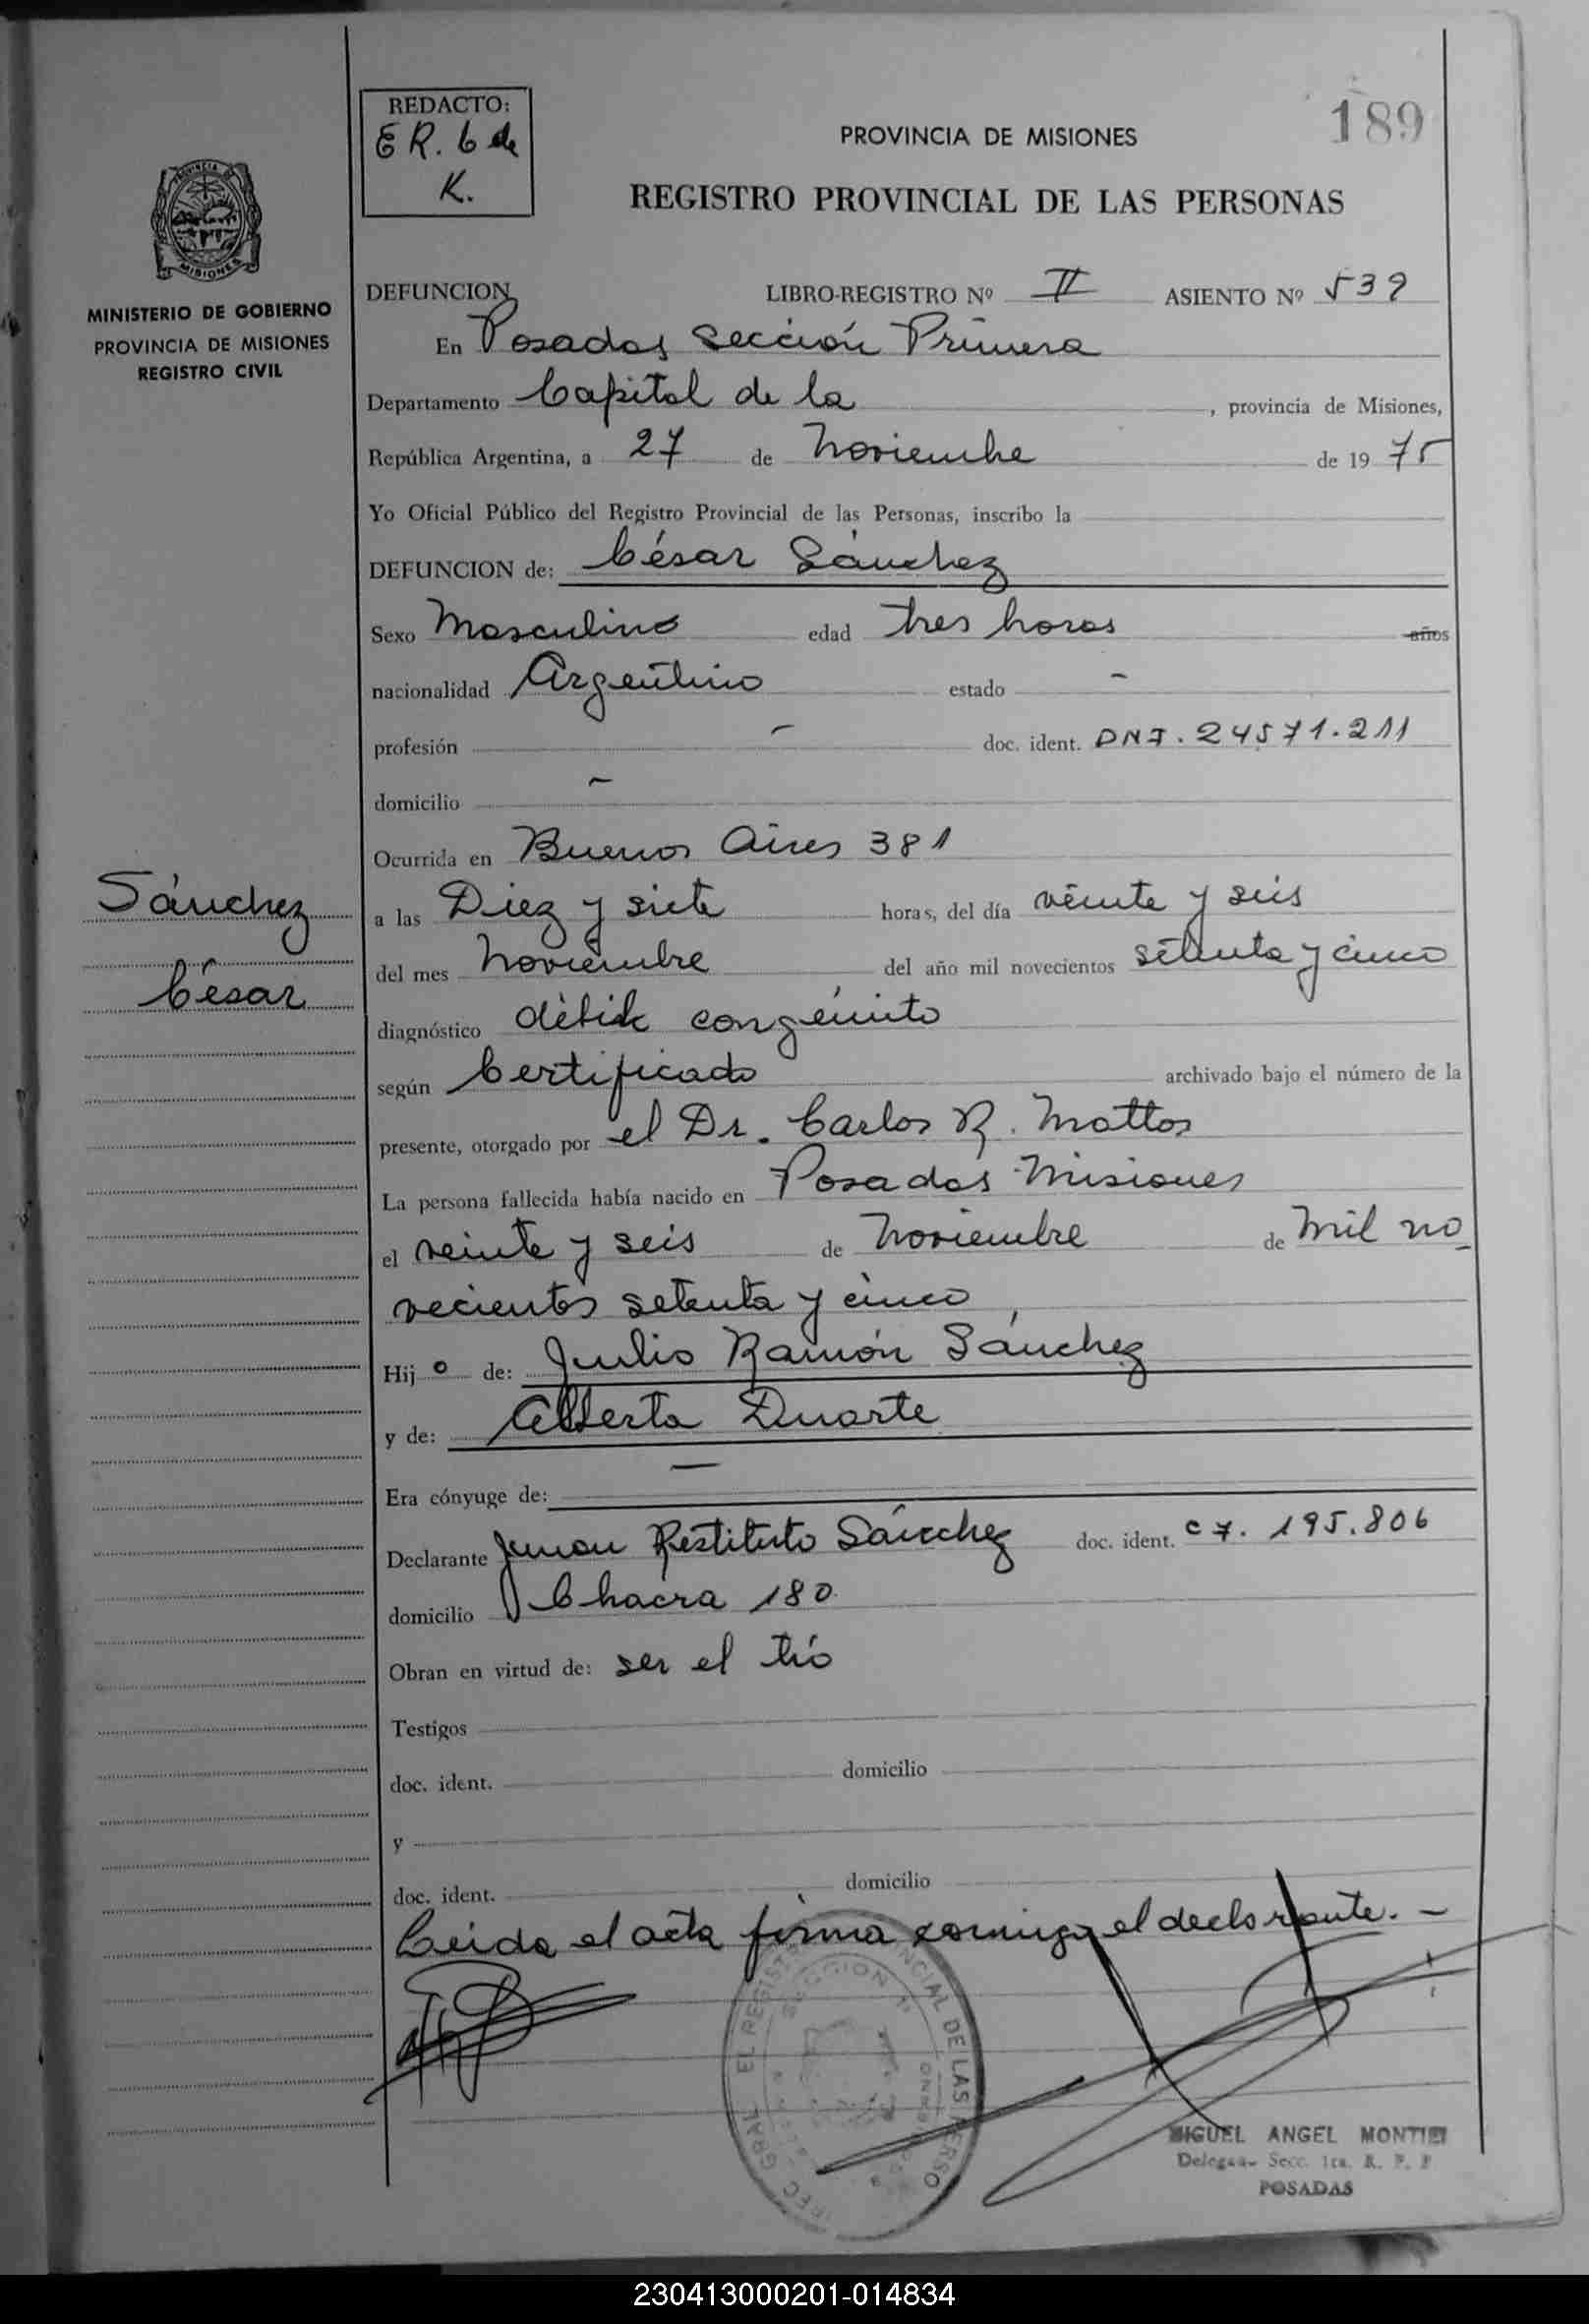 REDACTO:
E R. C de
K.
189
PROVINCIA DE MISIONES
REGISTRO PROVINCIAL DE LAS PERSONAS
MINISTERIO DE GOBIERNO
PROVINCIA DE MISIONES
REGISTRO CIVIL
DEFUNCION LIBRO-REGISTRO Nº II ASIENTO Nº 539
En Posadas Sección Primera
Departamento Capital de la , provincia de Misiones,
República Argentina, a 27 de Noviembre de 1975
Yo Oficial Público del Registro Provincial de las Personas, inscribo la
DEFUNCION de: César Sánchez
Sexo Masculino edad tres horas años
nacionalidad Argentino estado -
profesión - doc. ident. DNI. 24571.211
domicilio -
Ocurrida en Buenos Aires 381
Sánchez
César
a las Diez y siete horas, del día veinte y seis
del mes Noviembre del año mil novecientos setenta y cinco
diagnóstico débil congénito
según Certificado archivado bajo el número de la
presente, otorgado por el Dr. Carlos R. Mattos
La persona fallecida había nacido en Posadas Misiones
el veinte y seis de Noviembre de mil no
vecientos setenta y cinco
Hijo de: Julio Ramón Sánchez
y de: Alberta Duarte
Era cónyuge de: —
Declarante Juan Restituto Sánchez doc. ident. C 7. 195.806
domicilio Chacra 180
Obran en virtud de: ser el tío
Testigos
doc. ident. domicilio
y
doc. ident. domicilio
Leída el acta firma conmigo el declarante. -
MIGUEL ANGEL MONTIEL
Secc. 1ra. R. P. P
POSADAS
230413000201-014834